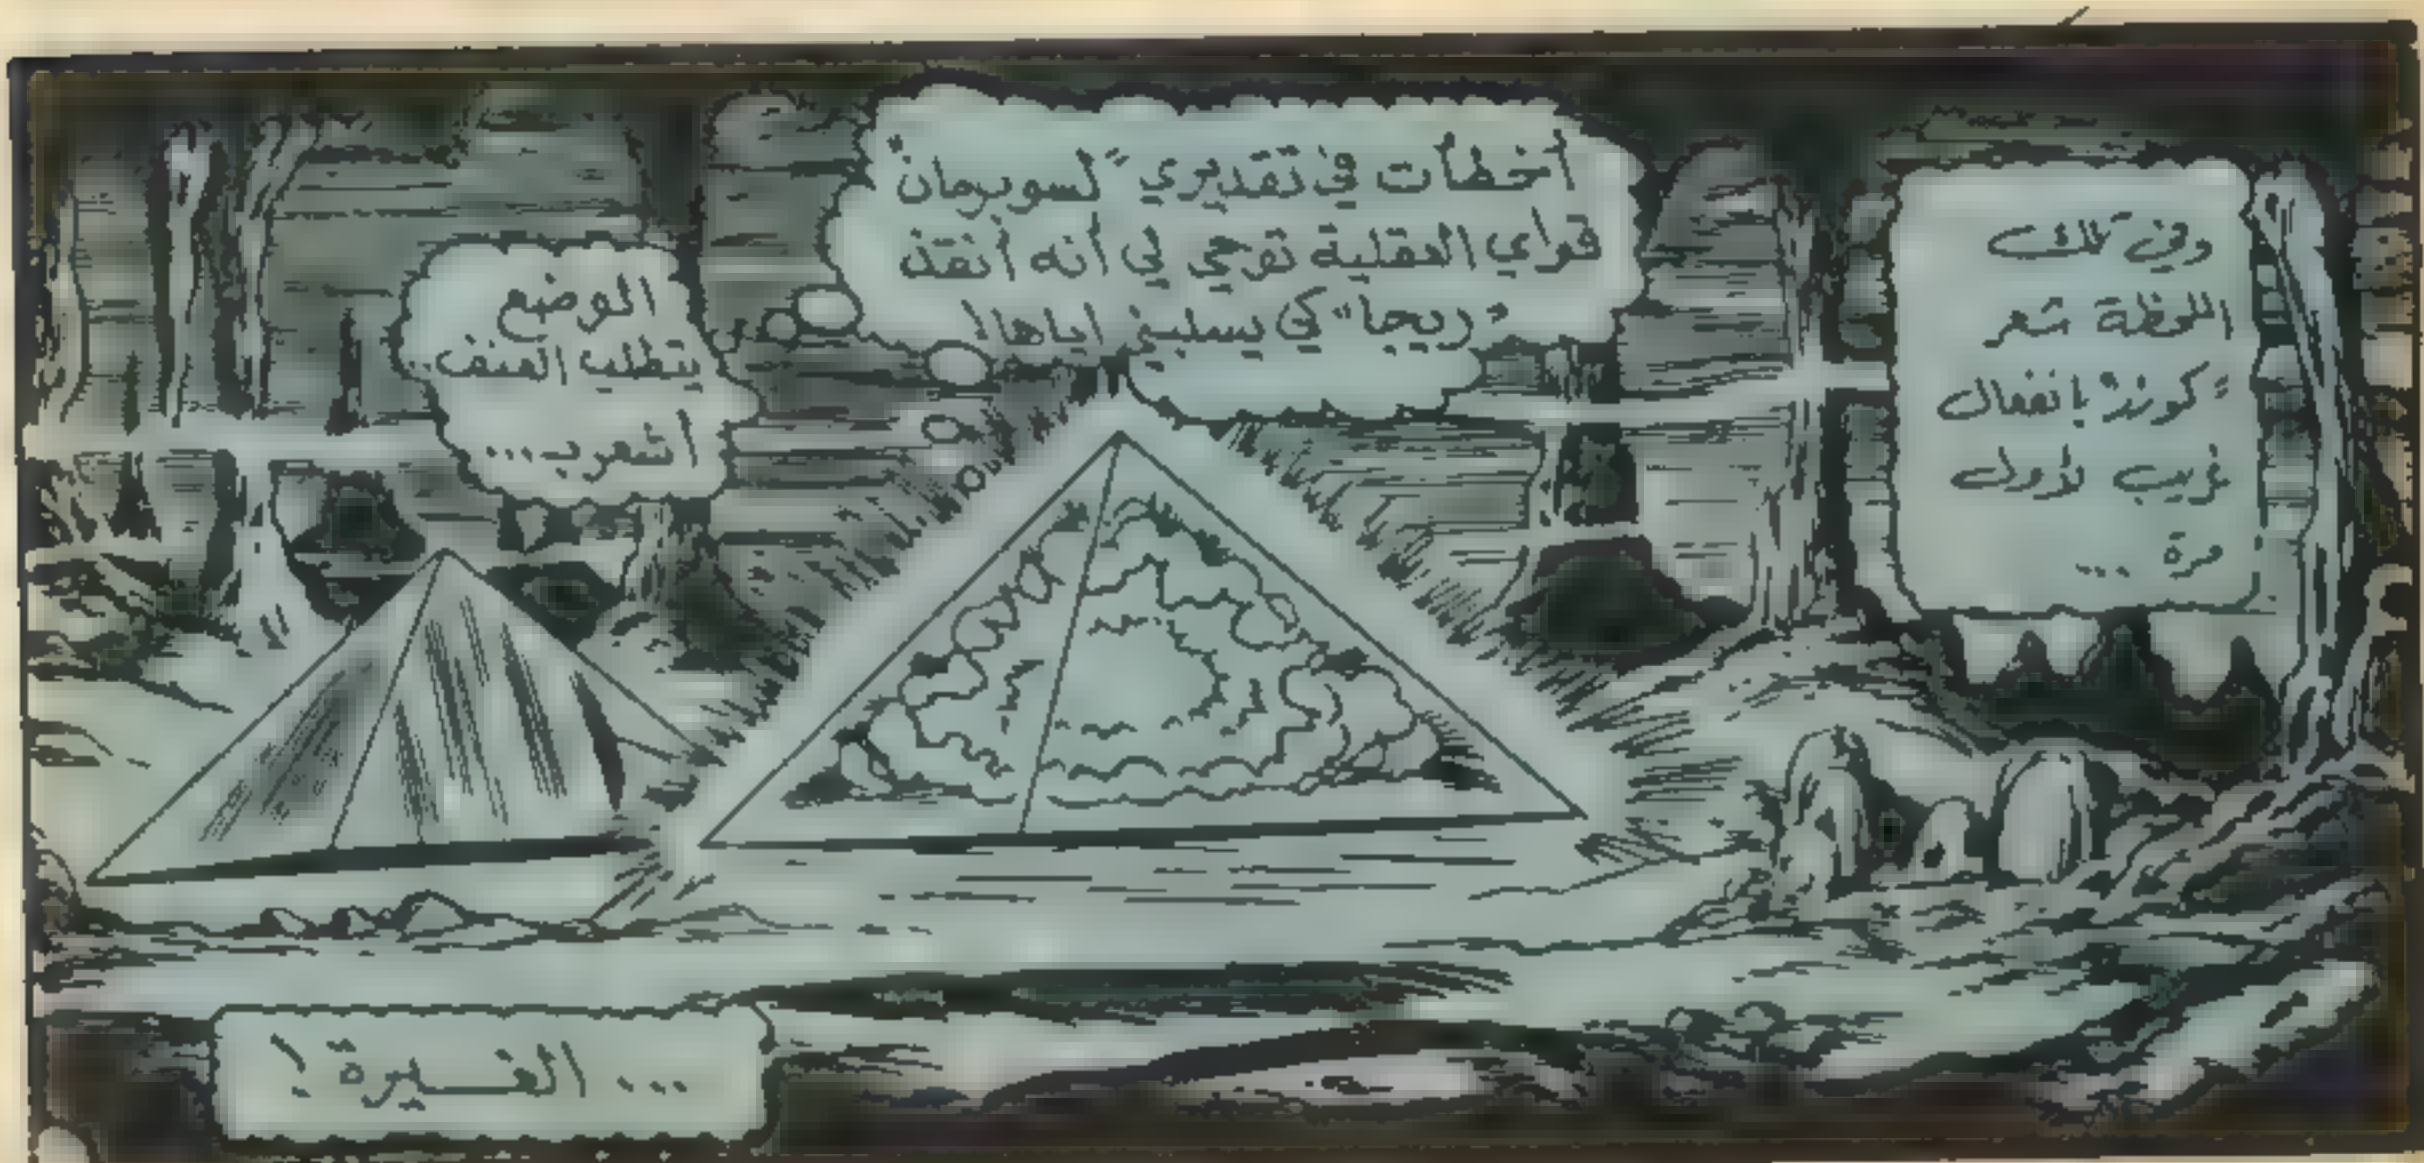 وفي تلك
اللحظة شعر
"كوند" بانفعال
غريب لأول
مرة ...
أخطأت في تقديري "لسوبرمان"
قواي العقلية توحي لي أنه أنقذ
"ريجا" كي يسلبني اياها!
الوضع
يتطلب العنف..
اشعر ب...
... الغيرة !